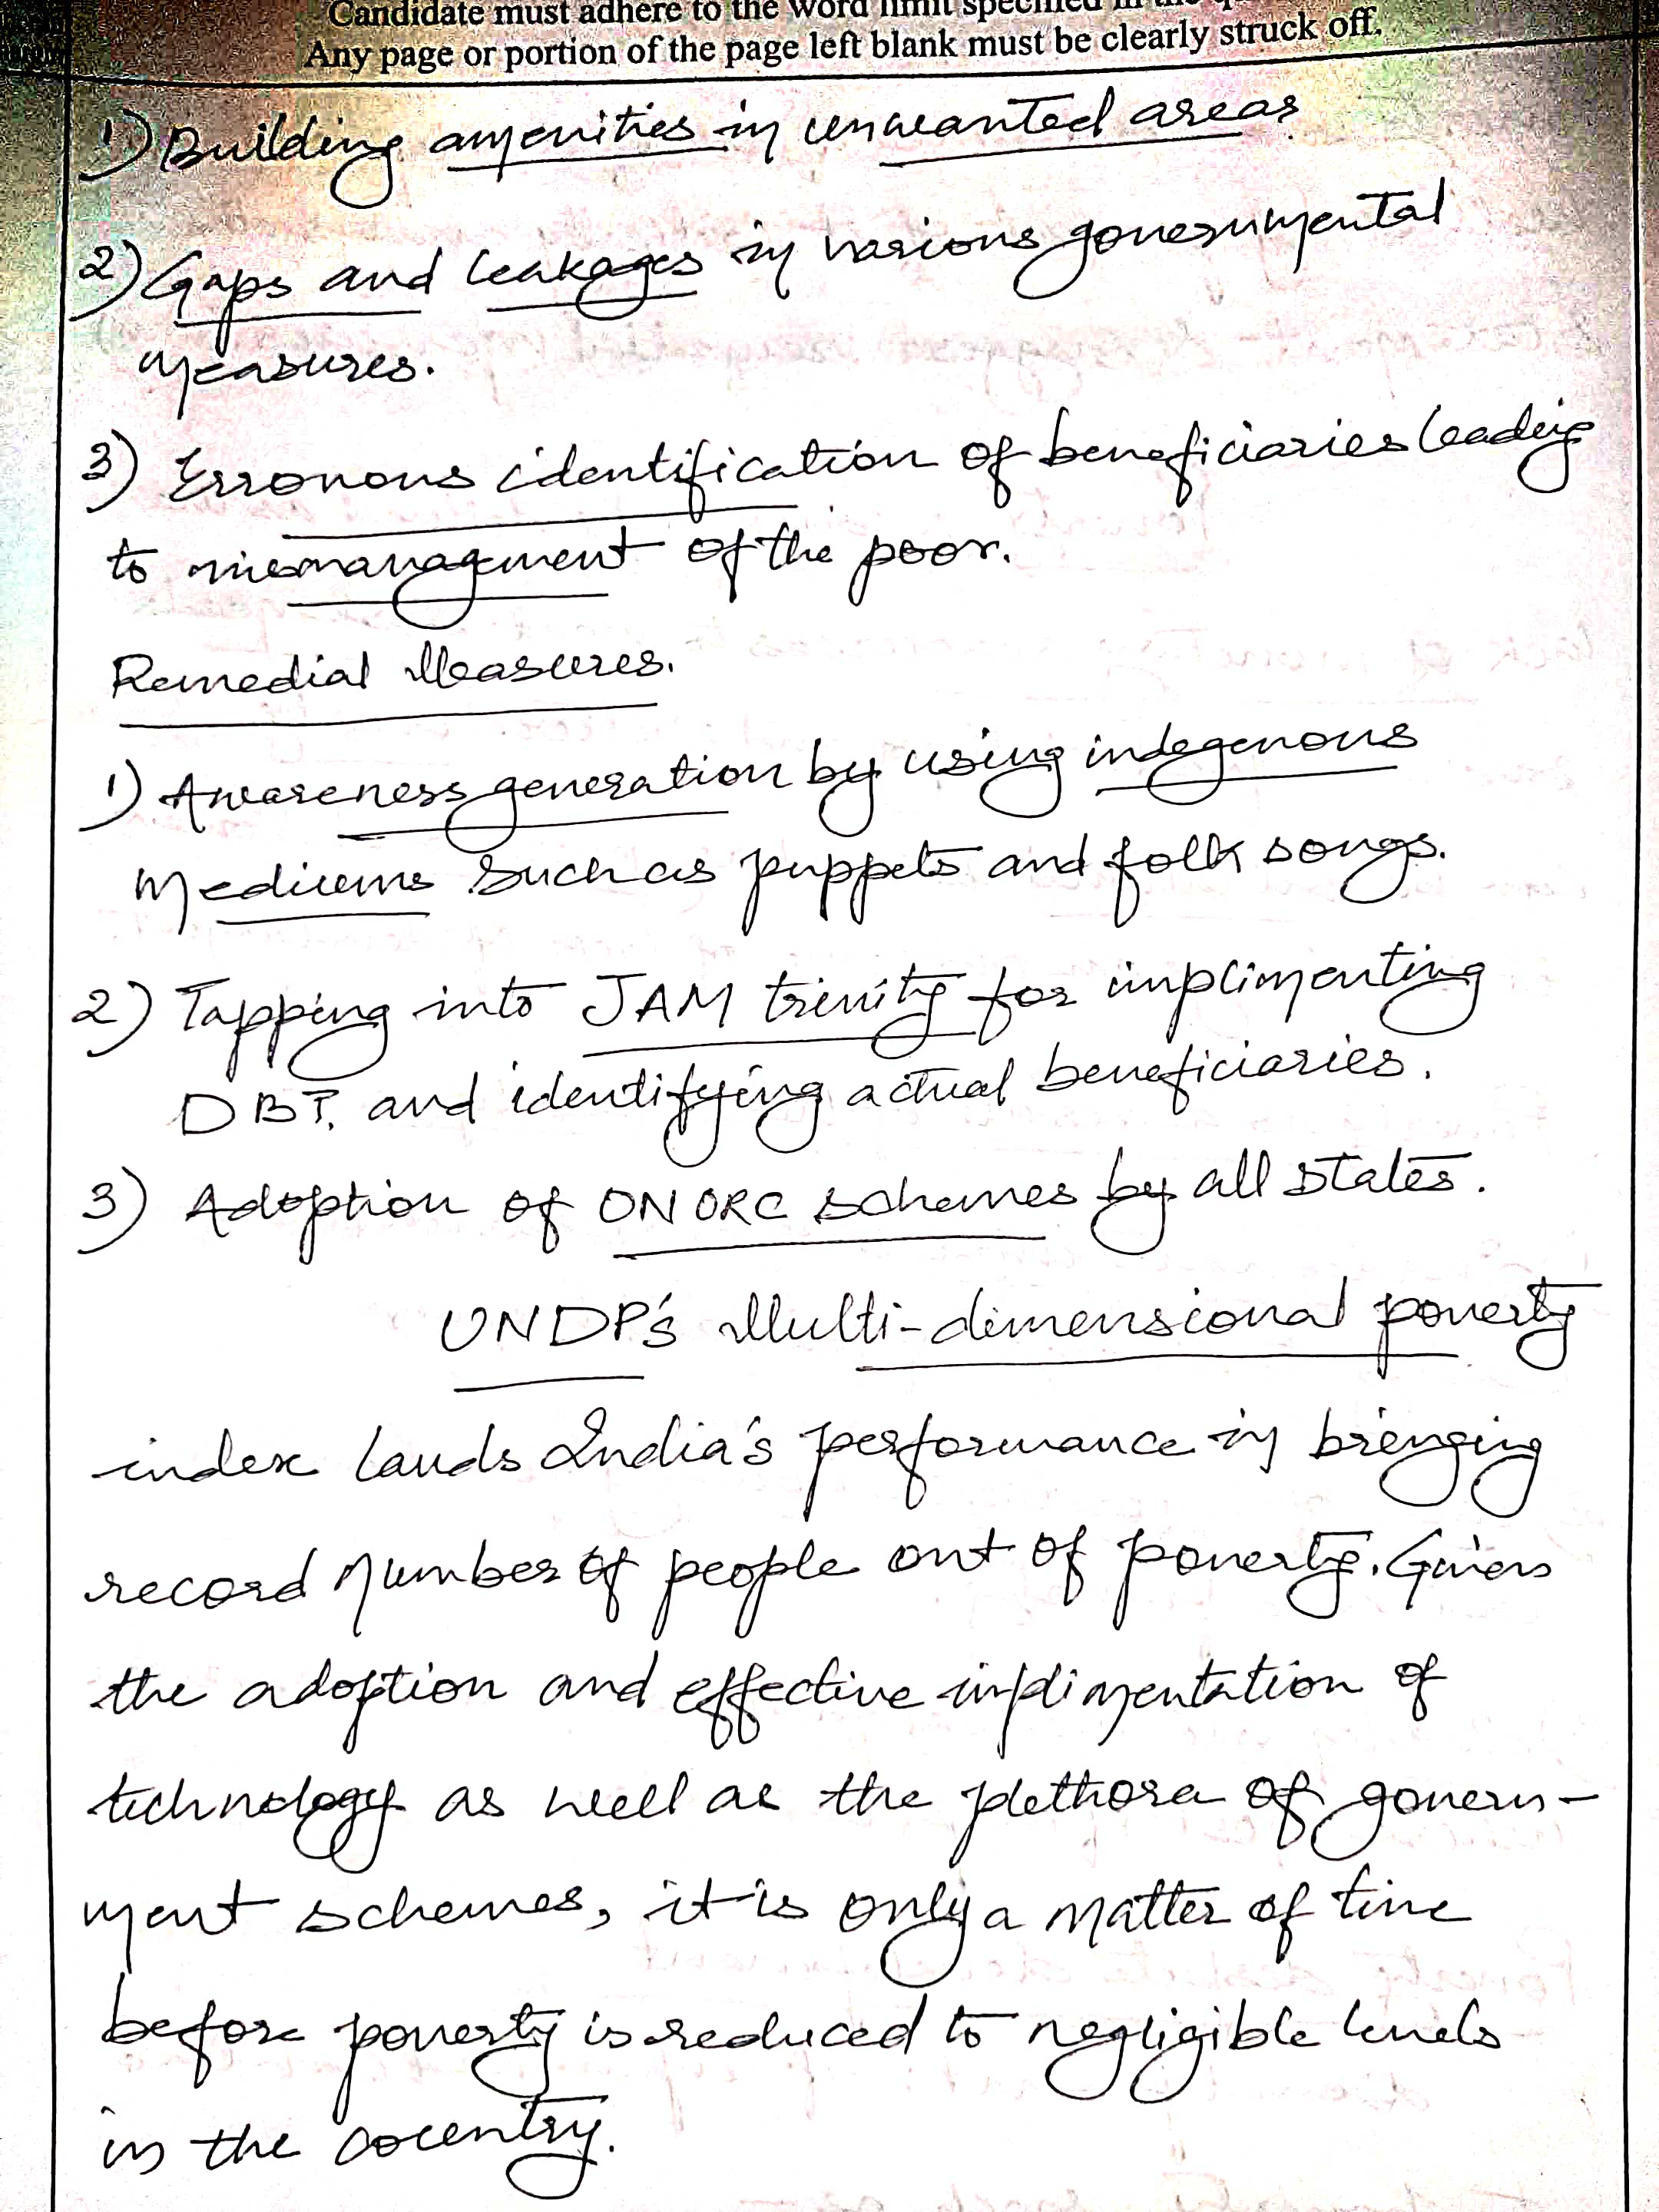 Candidate must adhere to the word limit specified in the
Any page or portion of the page left blank must be clearly struck off.
1) Building amenities in unwanted areas
2) Gaps and leakages in various governmental
measures.
3) Erronous identification of beneficiaries leading
to mismanagment of the poor.
Remedial Measures.
1) Awareness generation by using indegenous
Mediums such as puppets and folk songs.
2) Tapping into JAM trinity for implimenting
DBT, and identifying actual beneficiaries.
3) Adoption of ONORC schemes by all states.
UNDP's Multi-dimensional poverty
index lauds India's performance in bringing
record number of people out of poverty. Given
the adoption and effective implimentation of
technology as well as the plethora of govern-
ment schemes, it is only a matter of time
before poverty is reduced to negligible levels
in the country.